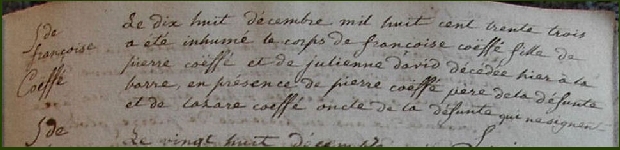 Sde
françoise
Coeffé
Le dix huit décembre mil huit cent trente trois
a été inhumé le corps de françoise coëffé fille de
pierre coëffé et de julienne david décédée hier à la
barre, en présence de pierre coëffé père de la défunte
et de lazare coeffé oncle de la défunte qui ne signent
Sde
Le vingt huit décembre